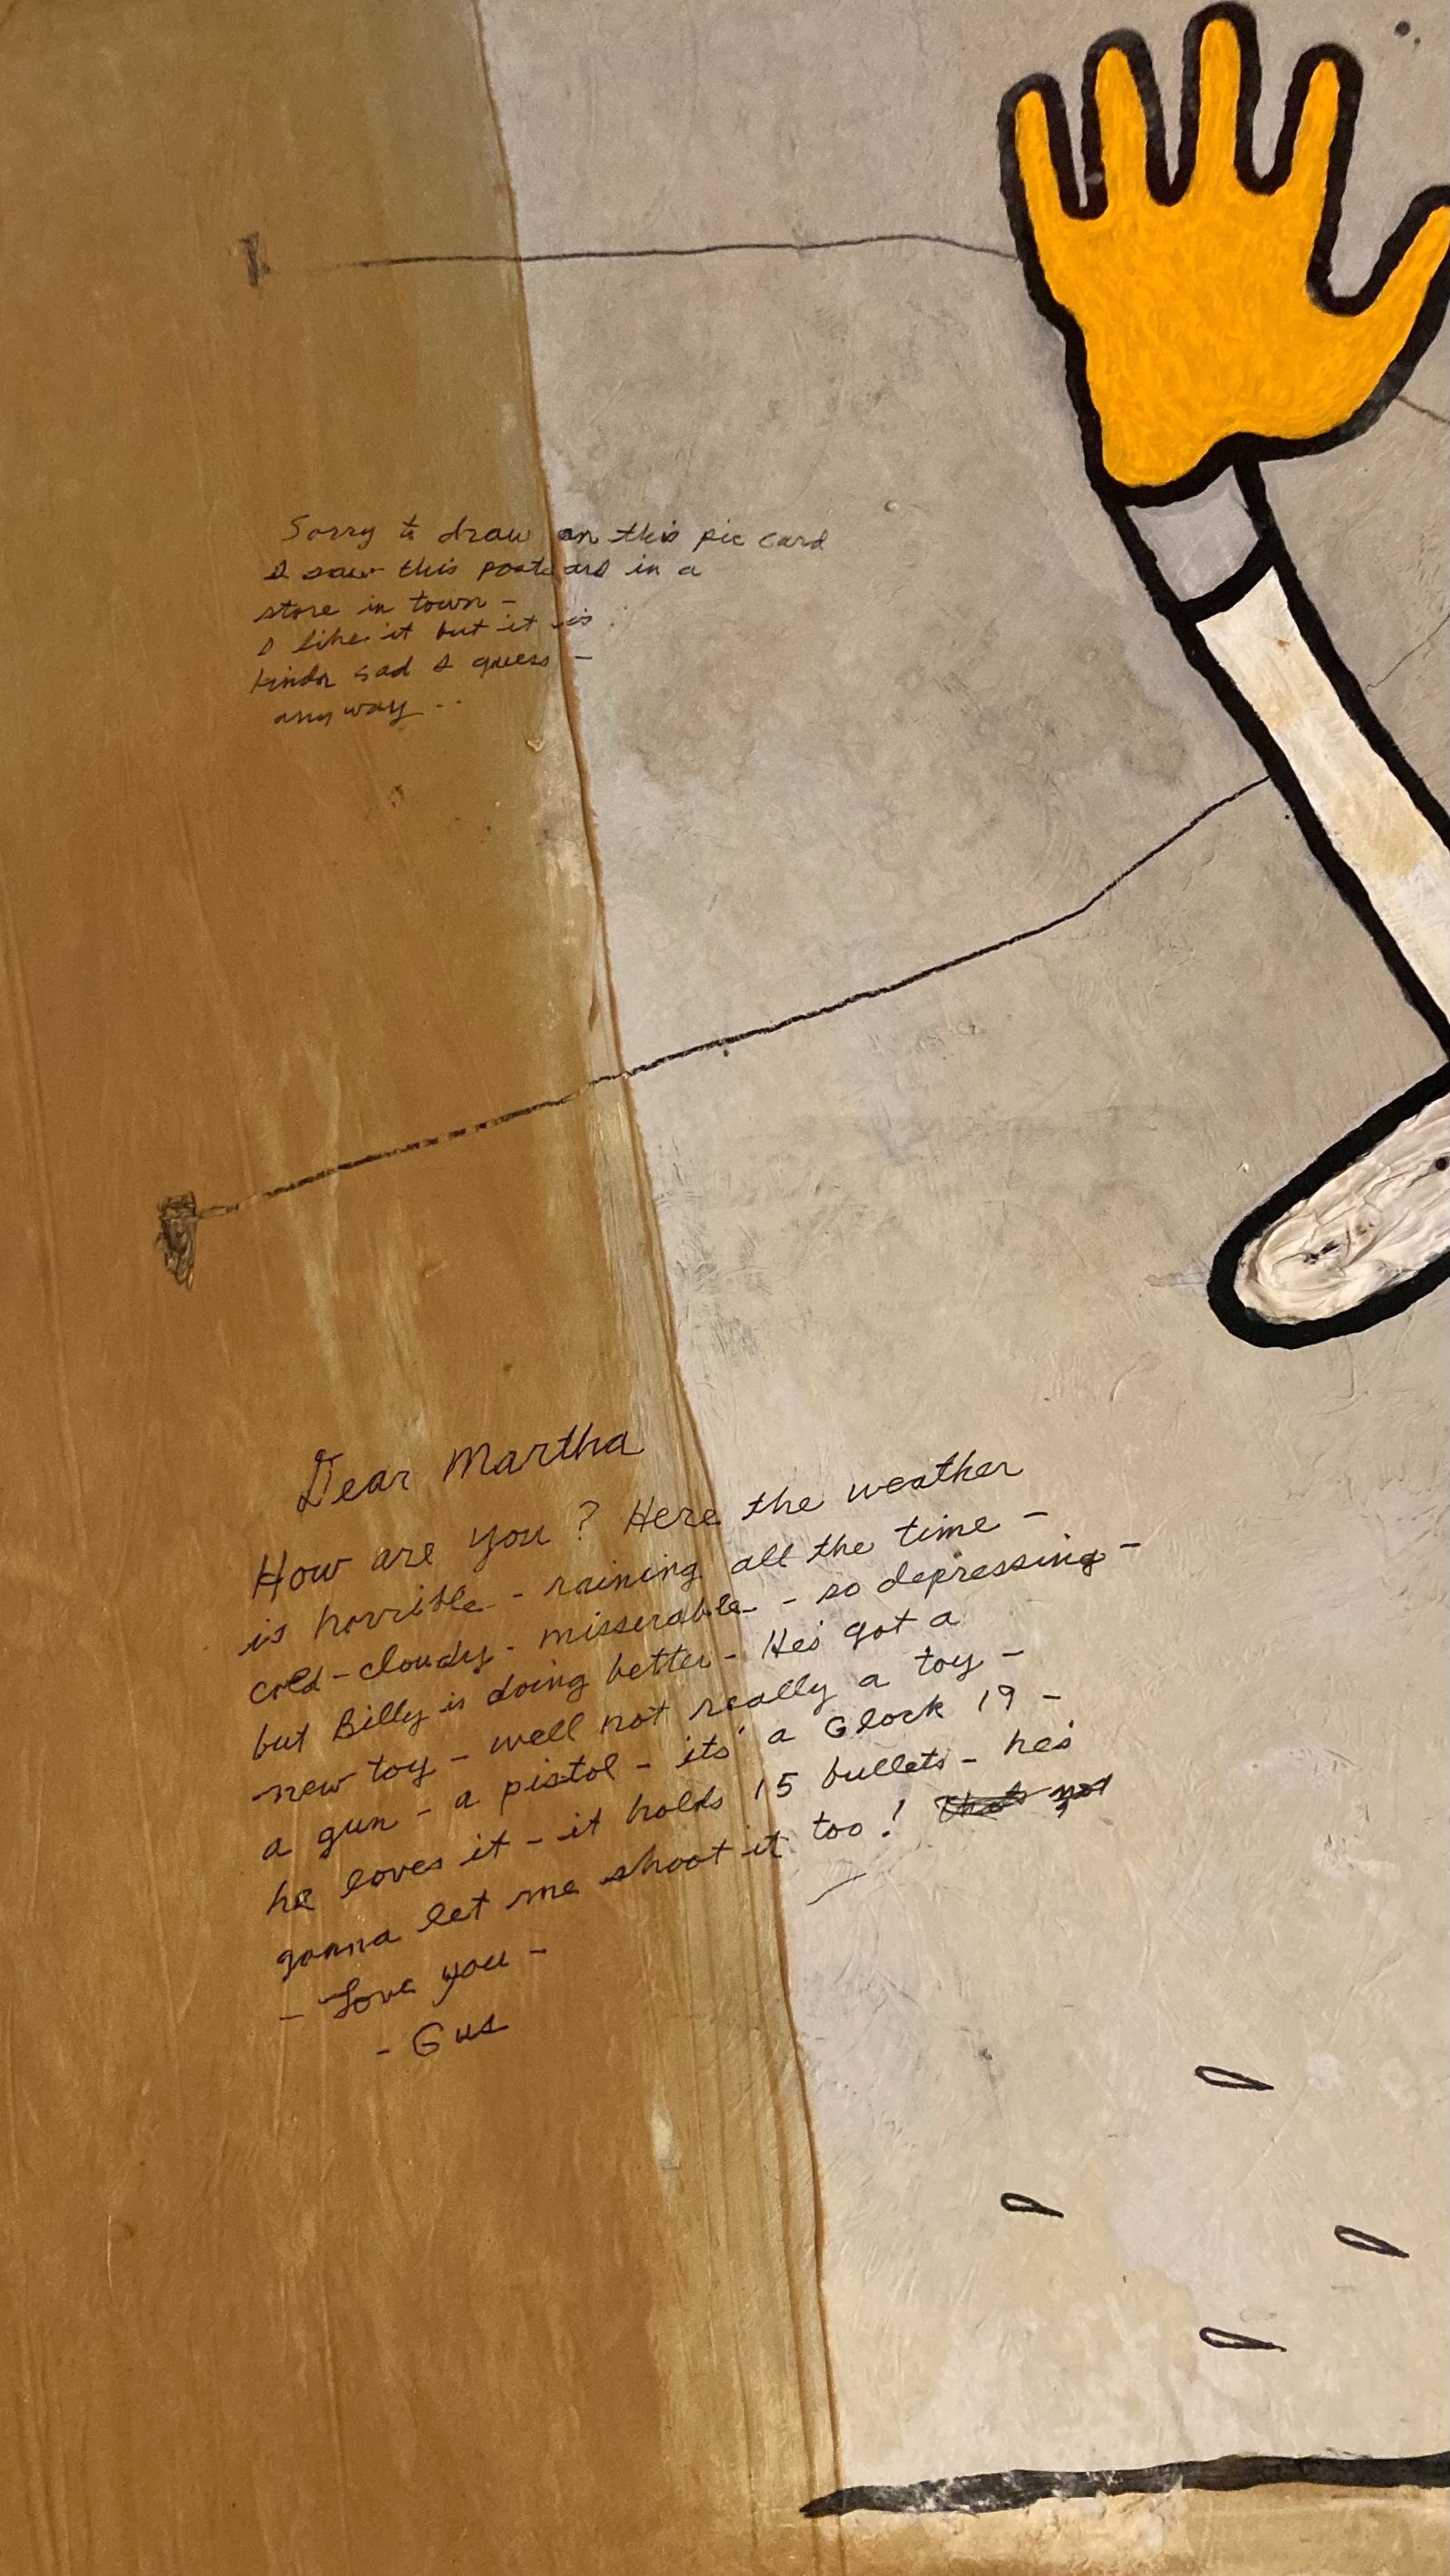 Sorry to draw on this pic card
I saw this postcard in a
store in town -
I like it but it is
kinda sad I guess -
anyway ..
Dear Martha
How are you ? Here the weather
is horrible - raining all the time -
cold - cloudy - misserable - so depressing -
but Billy is doing better - He's got a
new toy - well not really a toy -
a gun - a pistol - its' a Glock 19 -
he loves it - it holds 15 bullets - he's
gonna let me shoot it too ! Thats not
- Love you -
- Gus